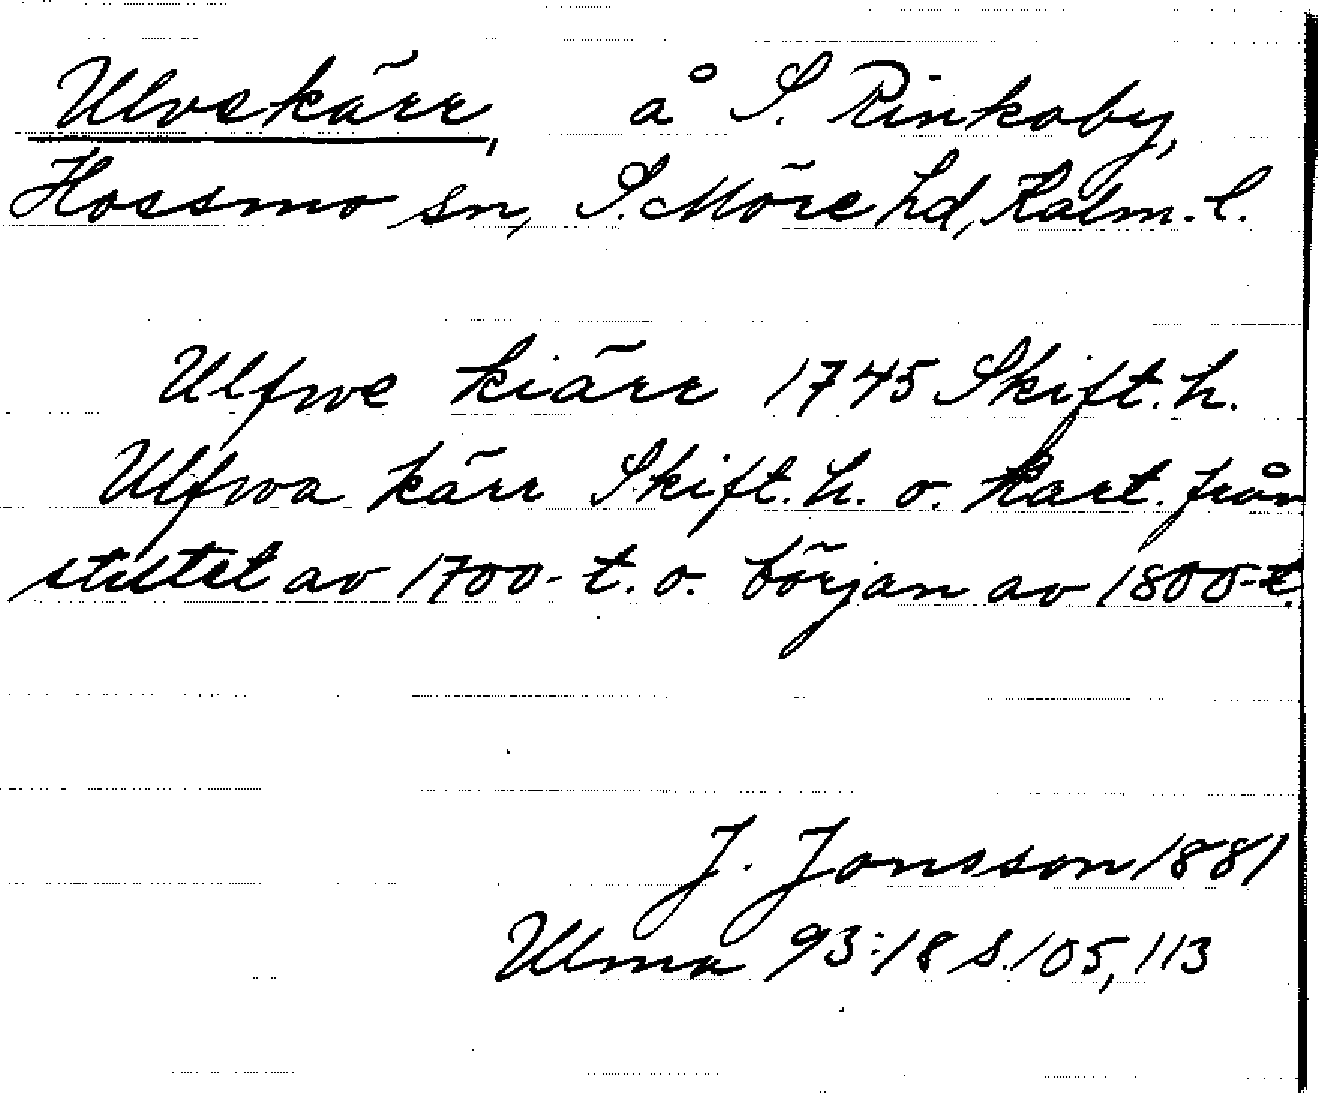 Ulvekärr, å S. Rinkaby,
Hossmo sn, S. Möre hd, Kalm. l.
Ulfwe kiärr 1745 Skift. h.
Ulfwa kärr Skift. h. o. kart. från
slutet av 1700-t. o. början av 1800-t.
J. Jonsson 1881
Ulma 93:18 s. 105, 113